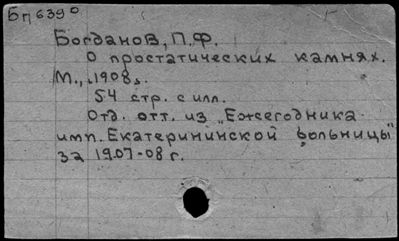 Бп 639°
Богданов, П.Ф.
О простатических камнях.
М., 1908.
54 стр. с илл.
Отд. отт. из „Ежегодника
имп. Екатерининской больницы"
за 1907-08 г.